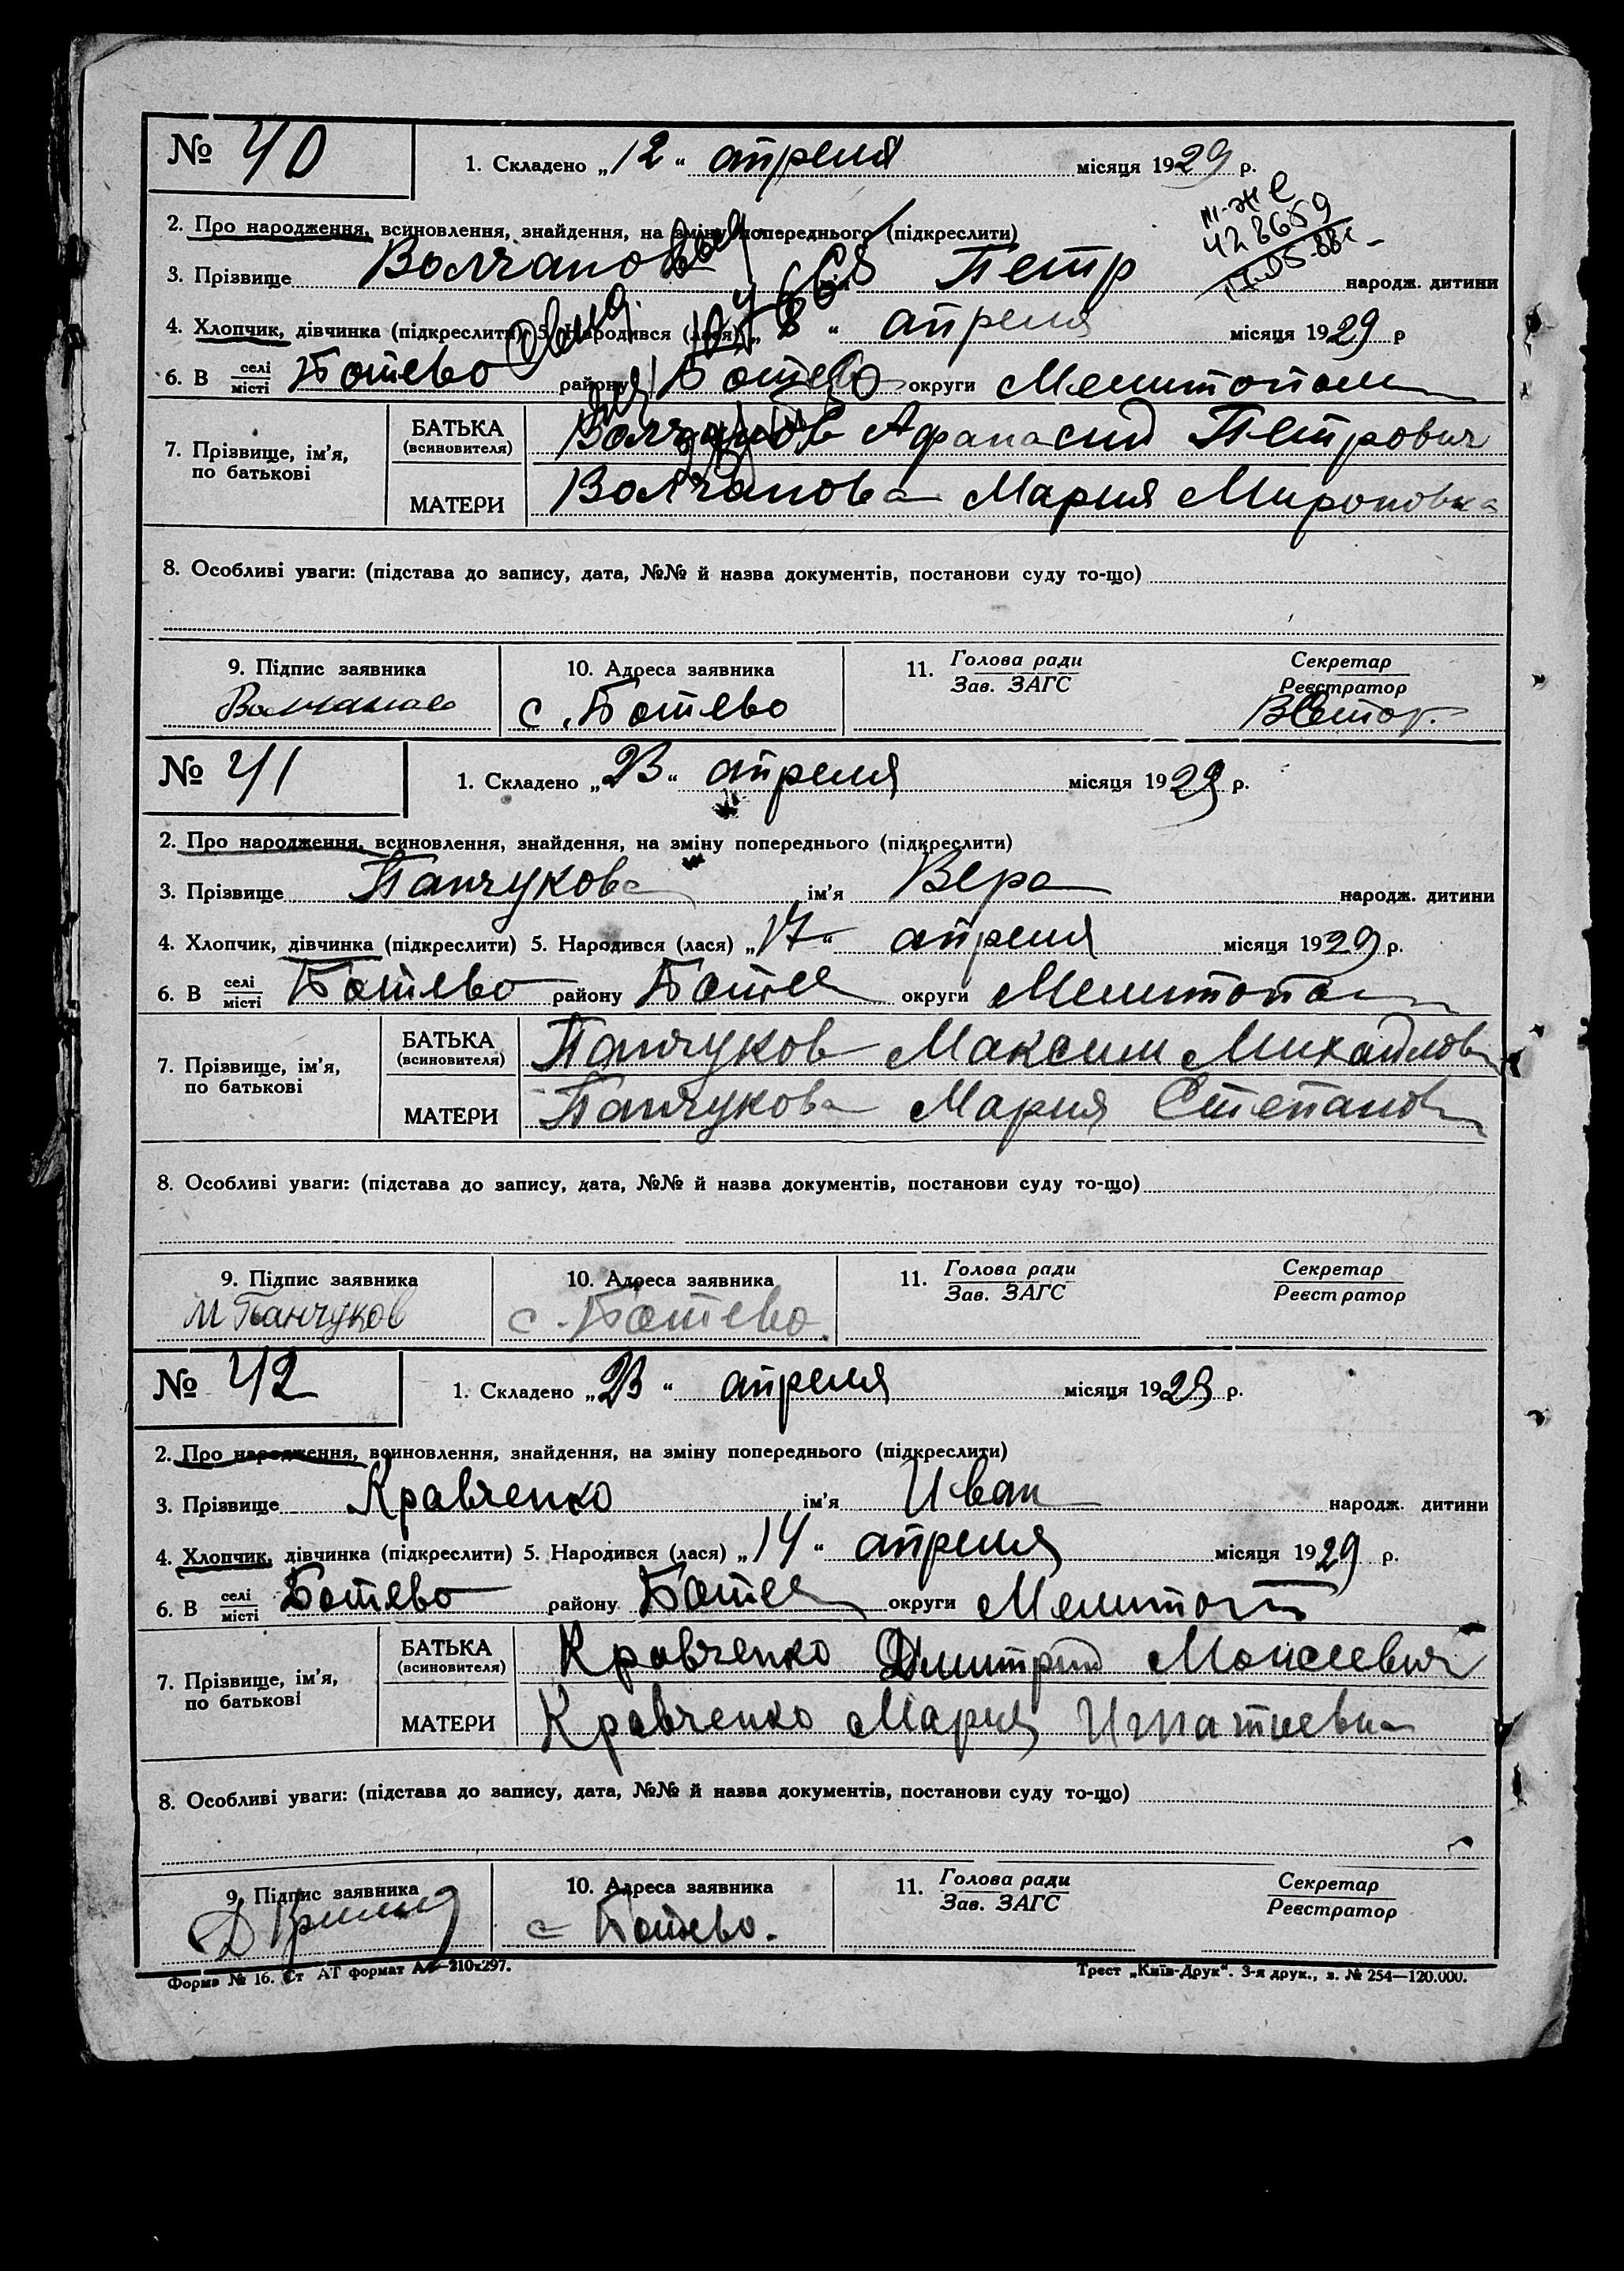 № 40
1. Складено „12“ апреля місяця 1929 р.
2. Про народження, всиновлення, знайдення, на зміну попереднього (підкреслити)
III-ЖС
428659
3. Прізвище Волчанов Петр народж. дитини
4. Хлопчик, дівчинка (підкреслити) 5. Народився (лася) „8“ апреля місяця 1929 р
6. В селі місті Ботево району Ботево округи Мелитополь
7. Прізвище, ім’я, по батькові
БАТЬКА (всиновителя) Волчанов Афанасий Петрович
МАТЕРИ Волчанова Мария Мироновна
8. Особливі уваги: (підстава до запису, дата, №№ й назва документів, постанови суду то-що)
9. Підпис заявника 10. Адреса заявника 11. Голова ради Секретар
Зав. ЗАГС Реєстратор
Волчанов с. Ботево
№ 41
1. Складено „23“ апреля місяця 1929 р.
2. Про народження, всиновлення, знайдення, на зміну попереднього (підкреслити)
3. Прізвище Панчукова ім’я Вера народж. дитини
4. Хлопчик, дівчинка (підкреслити) 5. Народився (лася) „17“ апреля місяця 1929 р.
6. В селі місті Ботево району Ботев округи Мелитопол
7. Прізвище, ім’я, по батькові
БАТЬКА (всиновителя) Панчуков Максим Михайлов
МАТЕРИ Панчукова Мария Степанов
8. Особливі уваги: (підстава до запису, дата, №№ й назва документів, постанови суду то-що)
9. Підпис заявника 10. Адреса заявника 11. Голова ради Секретар
Зав. ЗАГС Реєстратор
М Панчуков с. Ботево.
№ 42
1. Складено „23“ апреля місяця 1929 р.
2. Про народження, всиновлення, знайдення, на зміну попереднього (підкреслити)
3. Прізвище Кравченко ім’я Иван народж. дитини
4. Хлопчик, дівчинка (підкреслити) 5. Народився (лася) „14“ апреля місяця 1929 р.
6. В селі місті Ботево району Ботев округи Мелитоп
7. Прізвище, ім’я, по батькові
БАТЬКА (всиновителя) Кравченко Дмитрий Моисеевич
МАТЕРИ Кравченко Мария Игнатиевна
8. Особливі уваги: (підстава до запису, дата, №№ й назва документів, постанови суду то-що)
9. Підпис заявника 10. Адреса заявника 11. Голова ради Секретар
Зав. ЗАГС Реєстратор
с Ботево.
Форма № 16. Ст АТ формат А4—210x297. Трест „Київ-Друк“. 3-я друк., з. № 254—120.000.